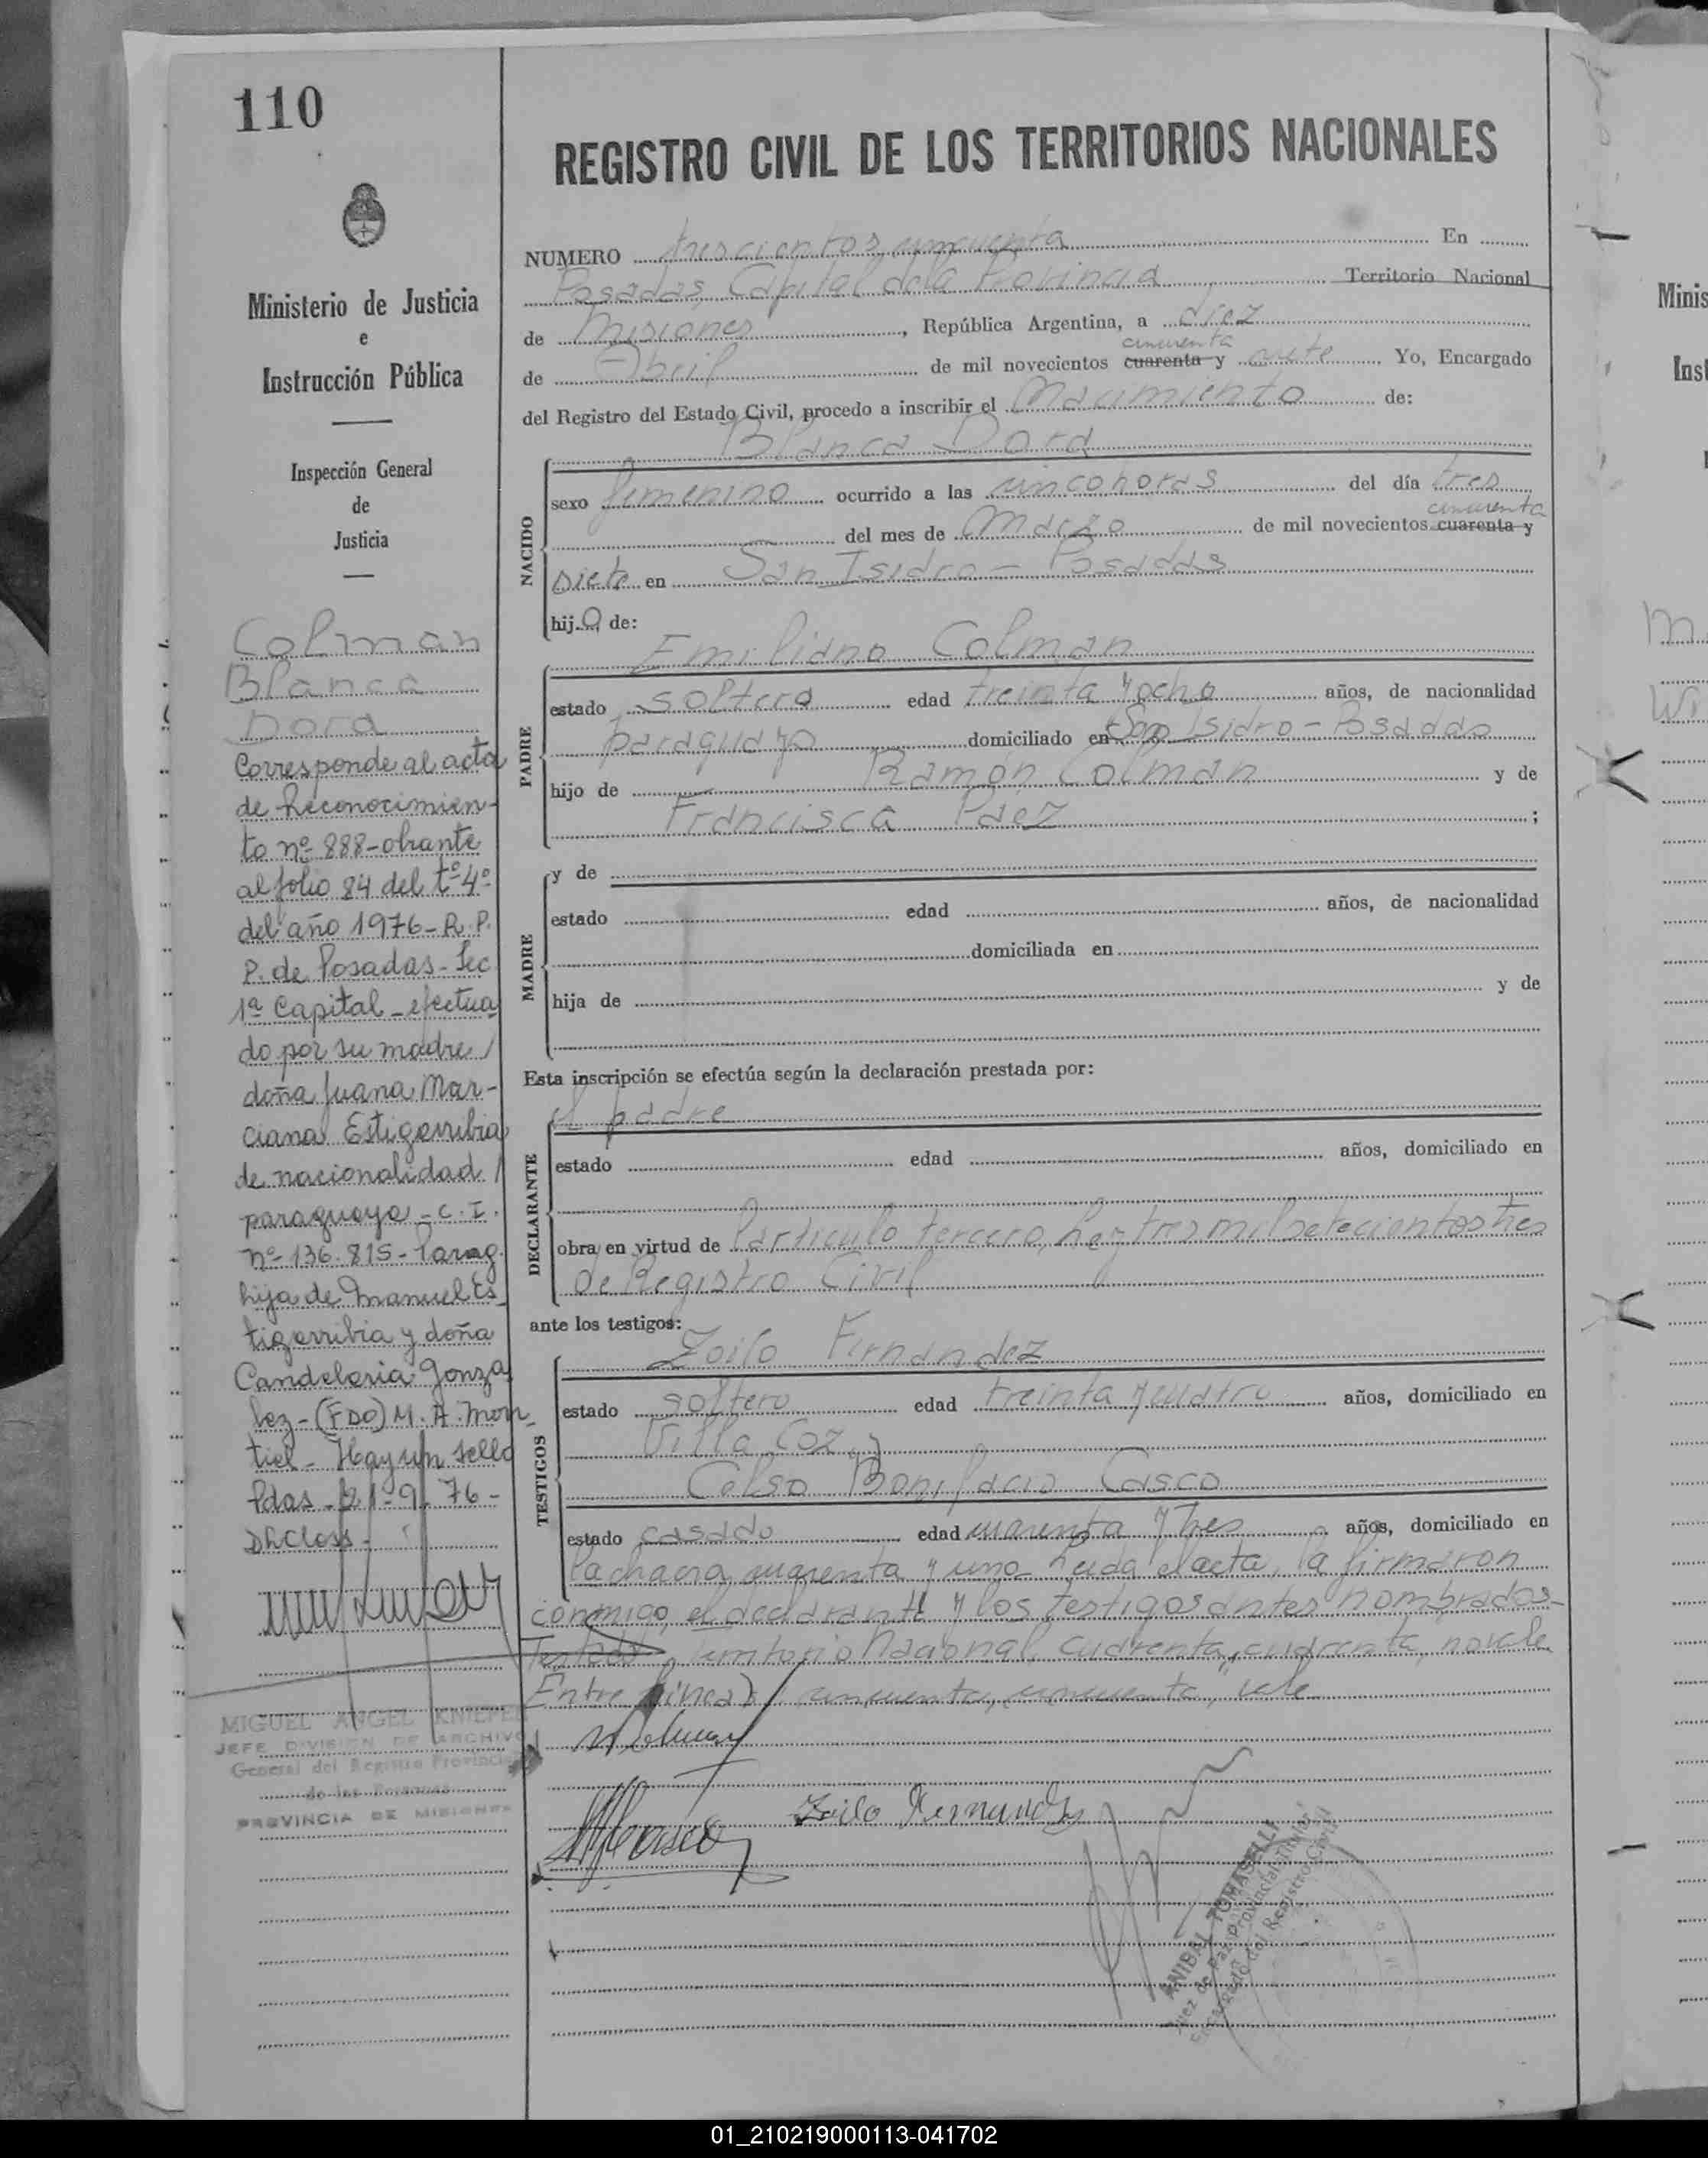 110
Ministerio de Justicia
e
Instrucción Pública
Inspección General
de
Justicia
Colman
Blanca
Dora
Corresponde al acta
de Reconocimien-
to nº 888-obrante
al folio 84 del tº 4º
del año 1976-R.P.
P. de Posadas-Sec
1ª Capital-efectua
do por su madre/
doña Juana Mar-
ciana Estigarribia
de nacionalidad/
paraguaya-C.I.
nº 136.815-Parag.
hija de Manuel Es_
tigarribia y doña
Candelaria Gonza
lez-(FDO) M. A. Mon_
tiel-Hay un sello
Pdas-21-9-76-
DhCloss-
MIGUEL ANGEL KNIEPER
JEFE DIVISION DE ARCHIVO
General del Registro Provincial
de las Personas
PROVINCIA DE MISIONES
REGISTRO CIVIL DE LOS TERRITORIOS NACIONALES
NUMERO trescientos cincuenta En
Posadas, Capital de la Provincia Territorio Nacional
de Misiones, República Argentina, a diez
cincuenta
de Abril de mil novecientos cuarenta y siete Yo, Encargado
del Registro del Estado Civil, procedo a inscribir el Nacimiento de:
Blanca Dora
NACIDO
sexo femenino ocurrido a las cinco horas del día tres
cincuenta
del mes de Marzo de mil novecientos cuarenta y
siete en San Isidro - Posadas
hija de:
Emiliano Colman
PADRE
estado soltero edad treinta y ocho años, de nacionalidad
paraguayo domiciliado en San Isidro - Posadas
hijo de Ramón Colman y de
Francisca Paez ;
MADRE
y de
estado edad años, de nacionalidad
domiciliada en
hija de y de
Esta inscripción se efectúa según la declaración prestada por:
el padre
DECLARANTE
estado edad años, domiciliado en
obra en virtud de l'articulo tercero, ley tres mil setecientos tres
de Registro Civil
ante los testigos:
TESTIGOS
Zoilo Fernandez
estado soltero edad treinta y cuatro años, domiciliado en
Villa Coz y
Celso Bonifacio Casco
estado casado edad cuarenta y tres años, domiciliado en
la chacra cuarenta y uno. Leida el acta, la firmaron
conmigo, el declarante y los testigos antes nombrados-
Testado, Territorio Nacional, cuarenta, cuarenta, no vale
Entre lineas, cincuenta, cincuenta, vale
Zoilo Fernandez
ANIBAL TOMASELLI
Juez de Paz Provincial Titular
Encargado del Registro Civil
Minis
Inst
01_210219000113-041702